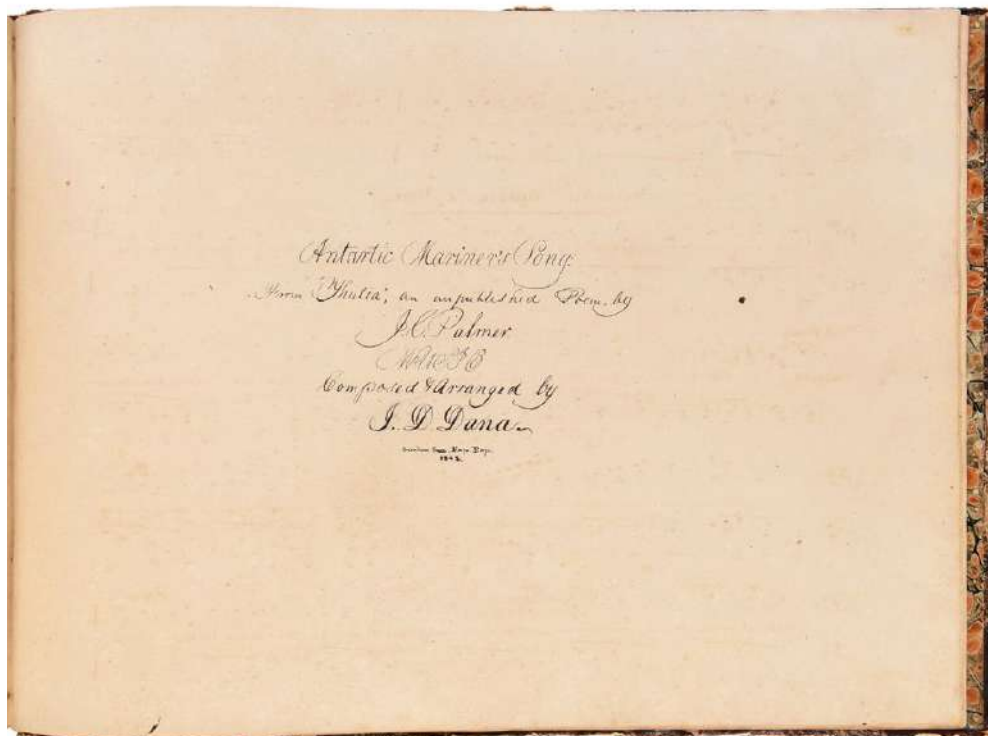 Antartic Mariner's Song
From 'Thulia', an unpublished Poem, by
J. C. Palmer.
Composed & Arranged by
J. D. Dana
1842.